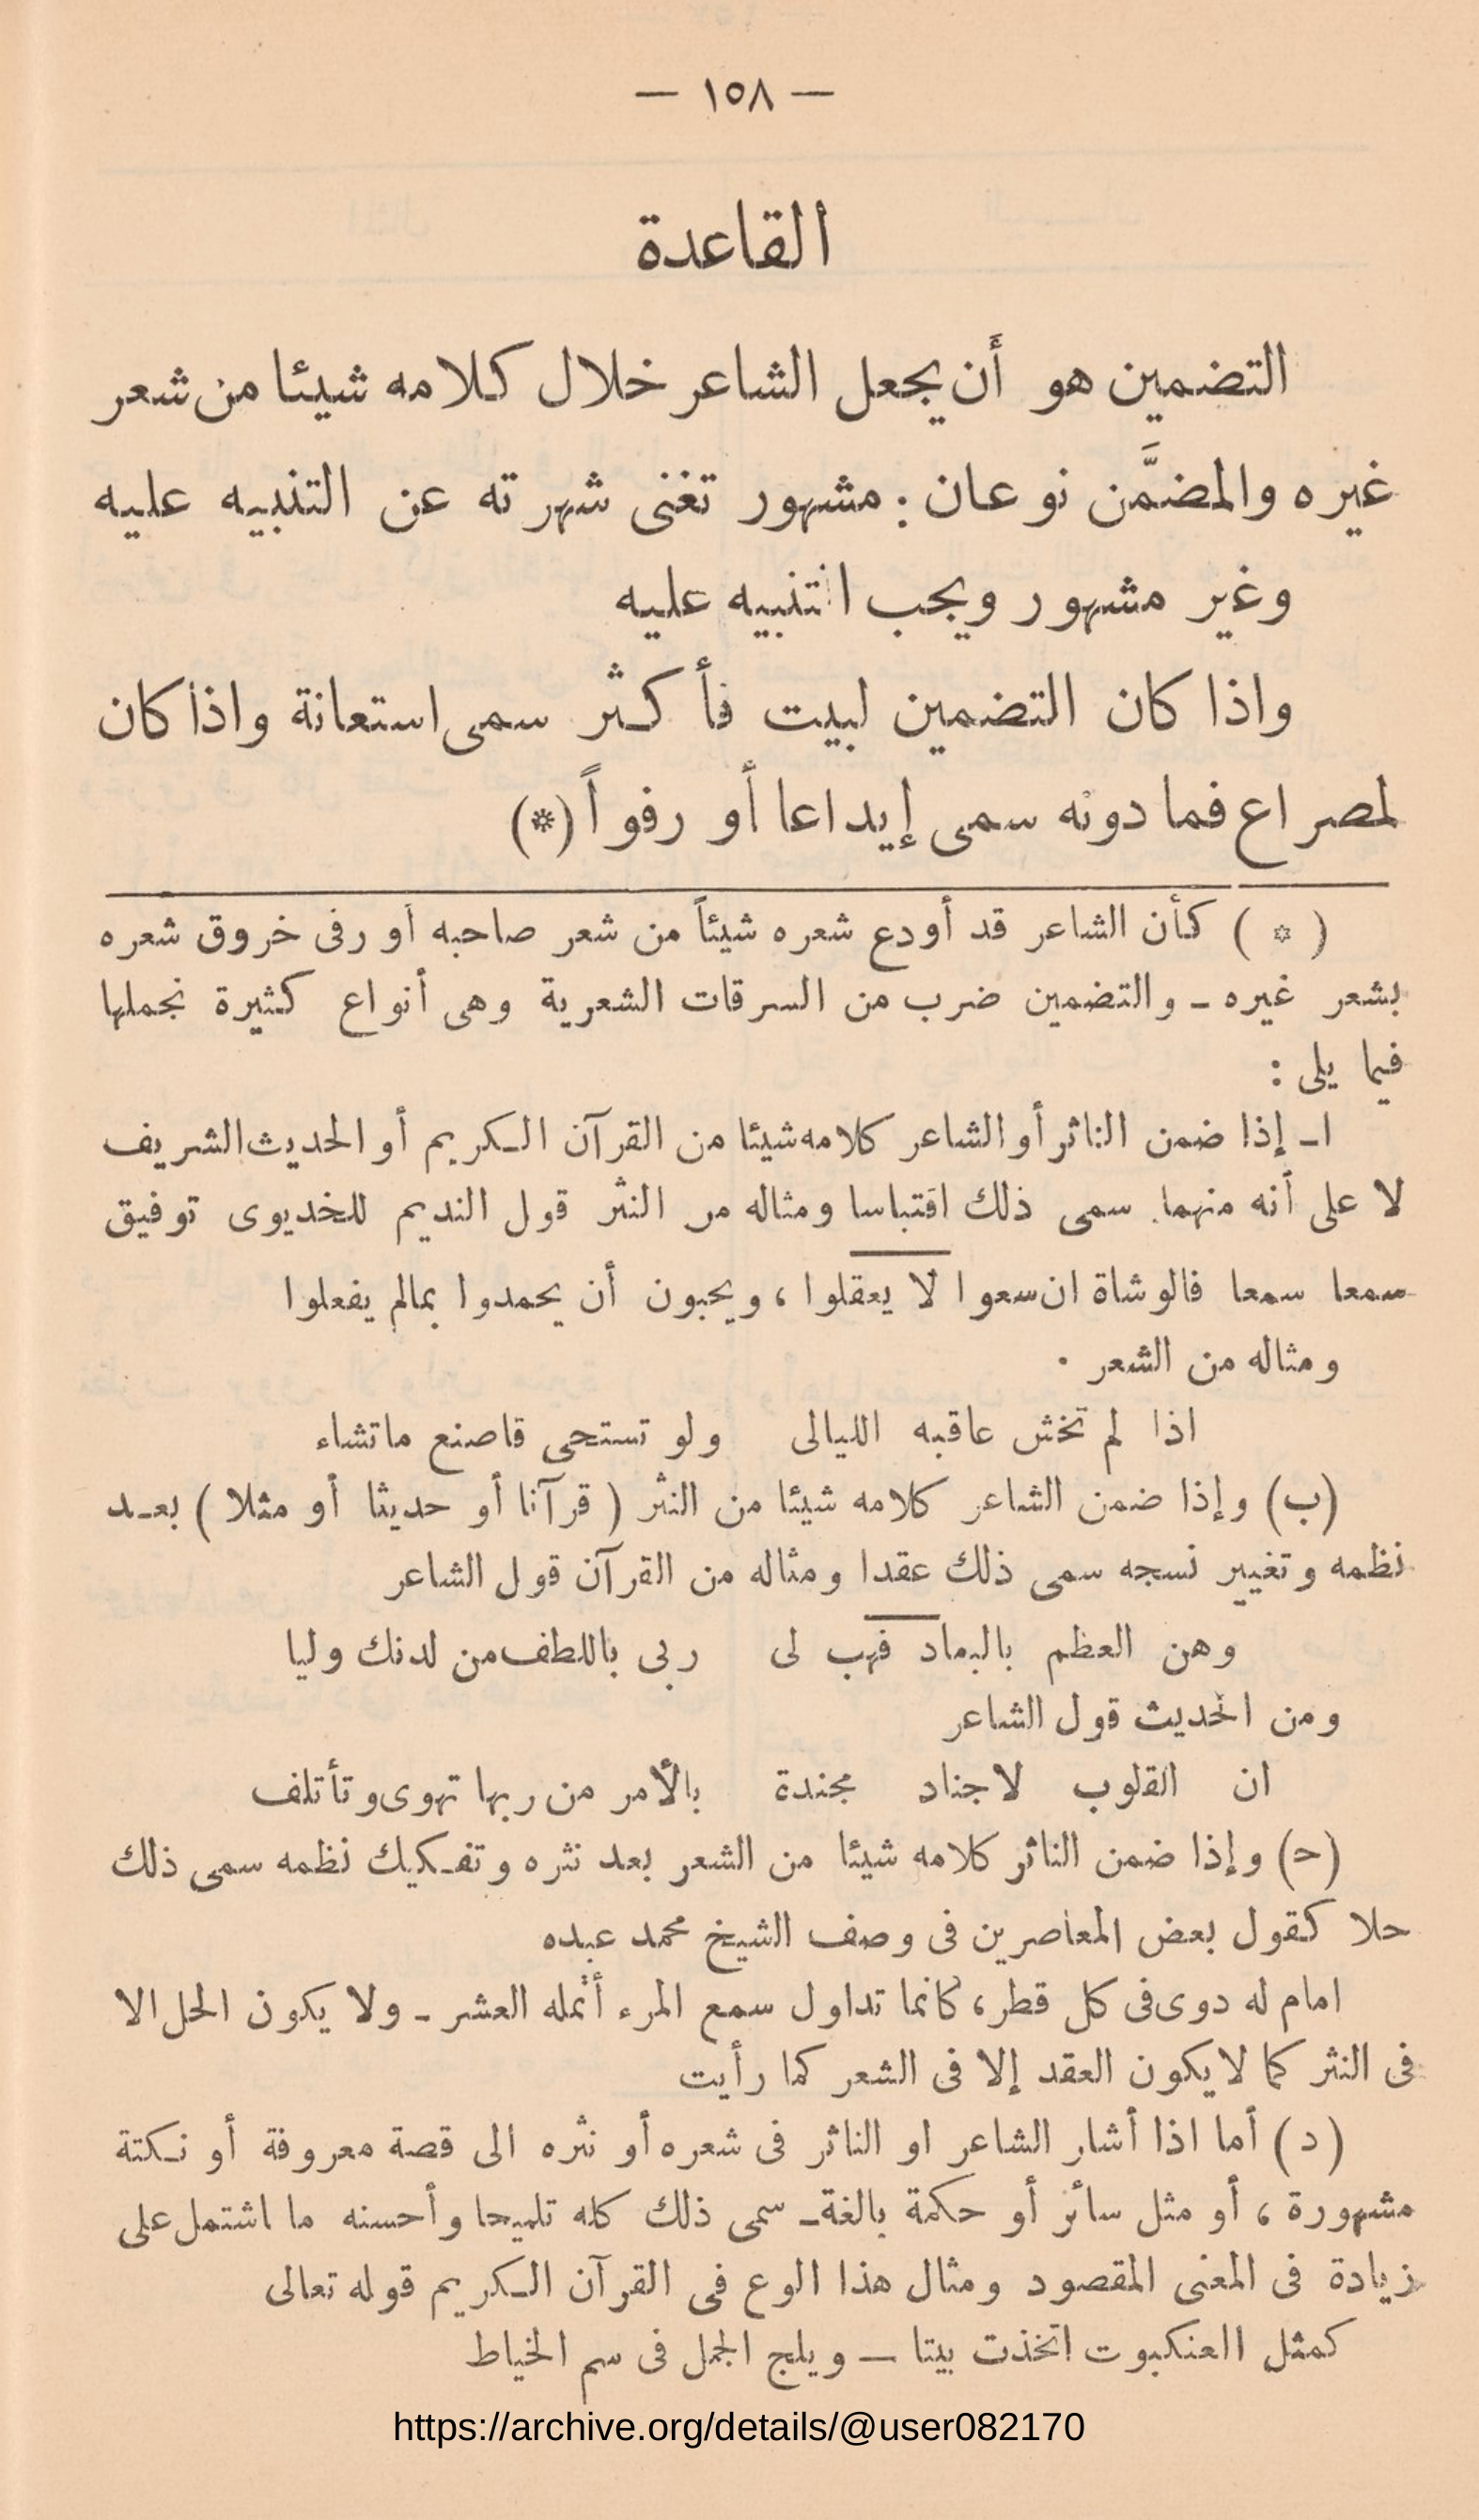 — ١٥٨ —
القاعدة
التضمين هو أَن يجعل الشاعر خلال كلامه شيئا من شعر
غيره والمضمَّن نوعان : مشهور تغنى شهرته عن التنبيه عليه
وغير مشهور ويجب التنبيه عليه
واذا كان التضمين لبيت فأكثر سمى استعانة واذا كان
لمصراع فما دونه سمى إيداعا أو رفواً (*)
( * ) كأن الشاعر قد أودع شعره شيئاً من شعر صاحبه أو رفى خروق شعره
بشعر غيره ـ والتضمين ضرب من السرقات الشعرية وهى أنواع كثيرة نجملها
فيما يلى :
ا ـ إذا ضمن الناثر أو الشاعر كلامه شيئا من القرآن الكريم أو الحديث الشريف
لا على أنه منهما. سمى ذلك اقتباسا ومثاله من النثر قول النديم للخديوى توفيق
سمعا سمعا فالوشاة ان سعوا لا يعقلوا ، ويحبون أن يحمدوا بمالم يفعلوا
ومثاله من الشعر .
اذا لم تخش عاقبه الليالى ولو تستحى قاصنع ماتشاء
(ب) وإذا ضمن الشاعر كلامه شيئا من النثر ( قرآنا أو حديثا أو مثلا ) بعد
نظمه وتغيير نسجه سمى ذلك عقدا ومثاله من القرآن قول الشاعر
وهن العظم بالبعاد فهب لى ربى باللطف من لدنك وليا
ومن الحديث قول الشاعر
ان القلوب لاجناد مجندة بالأمر من ربها تهوى وتأتلف
(ح) وإذا ضمن الناثر كلامه شيئا من الشعر بعد نثره وتفكيك نظمه سمى ذلك
حلا كقول بعض المعاصرين فى وصف الشيخ محمد عبده
امام له دوى فى كل قطر، كانما تداول سمع المرء أنمله العشر ـ ولا يكون الحل الا
فى النثر كما لا يكون العقد إلا فى الشعر كما رأيت
(د) أما اذا أشار الشاعر او الناثر فى شعره أو نثره الى قصة معروفة أو نكتة
مشهورة ، أو مثل سائر أو حكمة بالغة ـ سمى ذلك كله تلميحا وأحسنه ما اشتمل على
زيادة فى المعنى المقصود ومثال هذا الوع فى القرآن الكريم قوله تعالى
كمثل العنكبوت اتخذت بيتا — ويلج الجمل فى سم الخياط
https://archive.org/details/@user082170